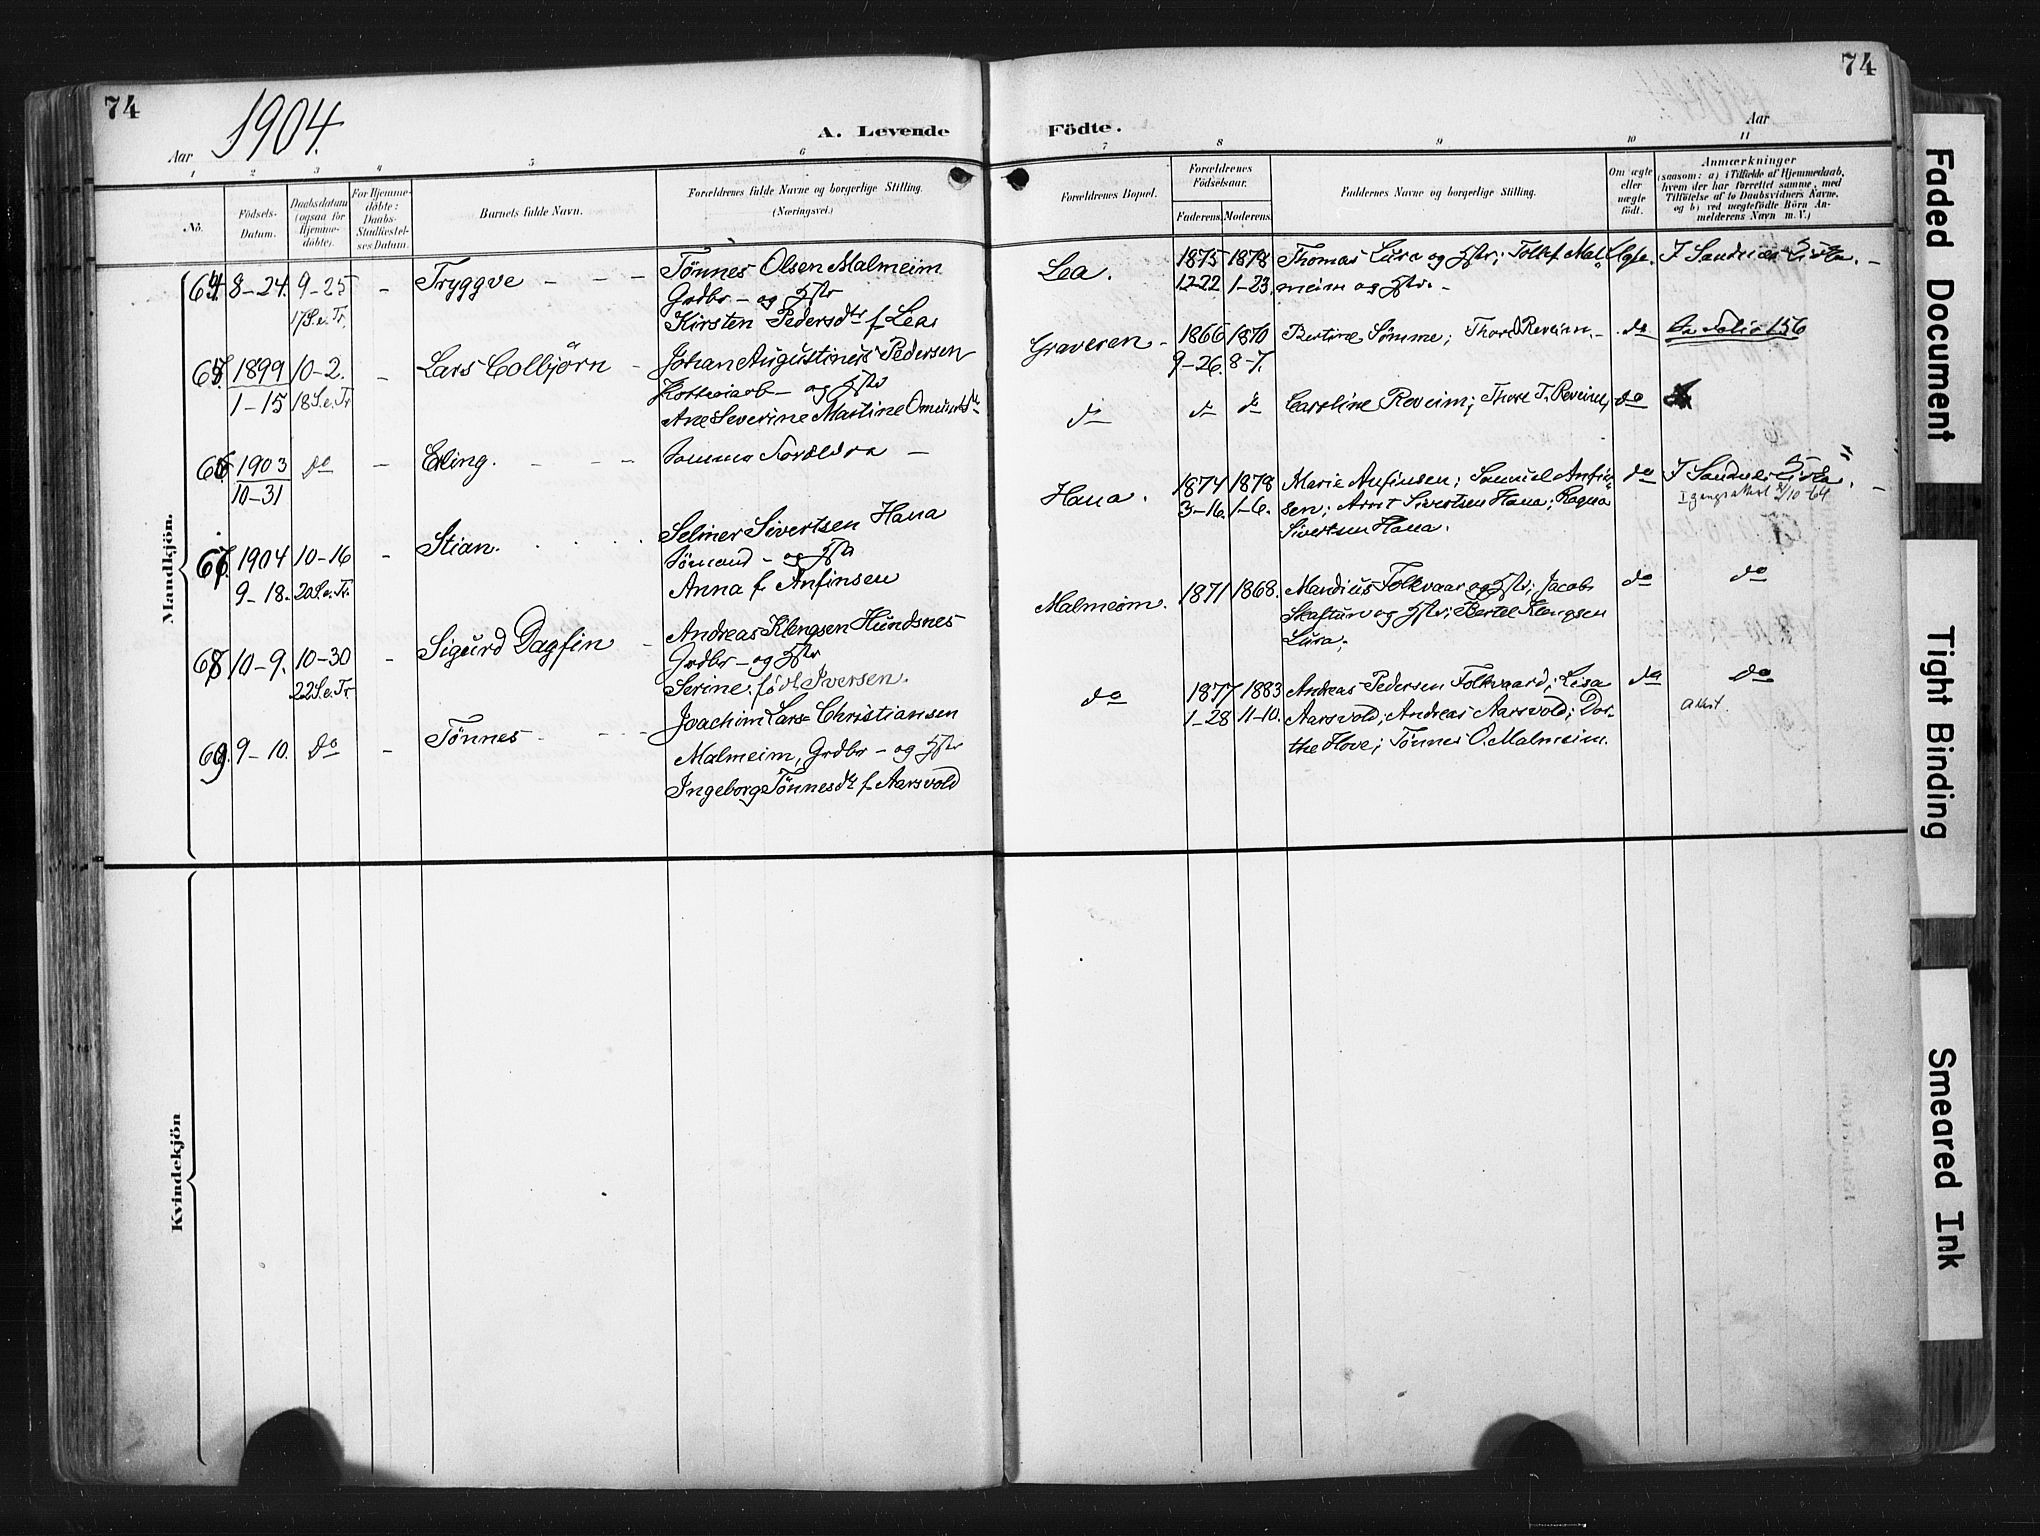 74
1904.
A. Levende
Aar
1 2 3 4 5 6
No.
Födsels-
Datum.
Daabsdatum
(ogsaa for
Hjemme-
döbte).
For Hjemme-
döbte:
Daabs-
Stadfæstel-
ses Datum.
Barnets fulde Navn.
Forældrenes fulde Navne og borgerlige Stilling.
(Næringsvei.)
Mandkjön.
64. 8-24. 9-25 - Tryggve - - - Tönnes Olsen Malmeim
17 S. e. Tr. Grdbr - og Hstr
Kirsten Pedersdtr f. Lea
65. 1899 10-2. - Lars Colbjörn - Johan Augustinius Pedersen
1-15 18 S. e. Tr. - og Hstr
Ane Severine Martine
66 1903 Do - Erling. - - - Samme Foreldra -
10-31
67. 1904 10-16 - Stian. Selmer Sivertsen Hana
9-18. 20 S. e. Tr. Sömand - og Hstr
Anna f. Anfinsen
68 10-9. 10-30 - Sigurd Dagfin - Andreas Klengsen Hundsnes
22 S. e. Tr Grdbr - og Hstr
Serine født Iversen.
69. 9-10. Do - Tönnes - - - Joachim Lars Christiansen
Malmeim, Grdbr - og Hstr
Ingeborg Tönnesdtr f. Aarsvold
Kvindekjön
74
Födte.
Aar
7 8 9 10 11
Forældrenes Bopæl.
Forældrenes
Födselsaar.
Faderens. Moderens.
Faddernes Navne og borgerlige Stilling.
Om ægte
eller
uægte
födt.
Anmærkninger
(saasom: a) i Tilfælde af Hjemmedaab,
hvem der har forrettet samme, med
Tilföielse af to Daabsvidners Navne,
og b) ved uægtefödte Börn An-
melderens Navn m. V.)
Lea. 1875 1878 Thomas Lura og Hstr; Tollef Mal-
12-22 1-23. meim og Hstr. -
Graveren - 1866 1870 Bertine Sömme; Thord Reveim. - do Folio 156
9-26. 8-7.
do do do Caroline Reveim; Thore T. Reveim, do
Hana. 1874 1878 Marie Anfinsen; Samuel Anfin- do
3-16. 1-6. sen; Arnt Sivertsen Hana; Ragna
Sivertsen Hana.
Malmeim. 1871 1868. Mandius Folkvaar og Hstr; Jacob do do
og Hstr; Bertel Klengsen
Lura;
do 1877 1883 Andreas Pedersen Folkvaard; Lisa do do
1-28 11-10. Aarsvold; Andreas Aarsvold; Dor- attest.
the Hove; Tönnes O. Malmeim.
Faded Document
Tight Binding
Smeared Ink